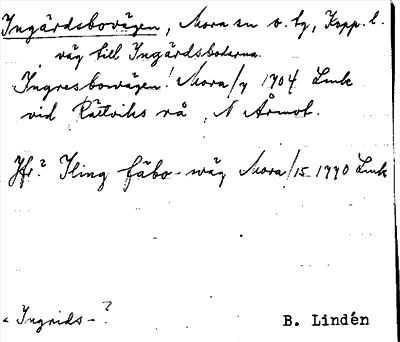 Ingärdsbovägen, Mora sn o. tg, Kopp. l.
väg till Ingärdsbodarna.
Ingresbovägen! Mora/7 1704 Lmk
vid Rättviks rå, N Årmot.
Jfr? Iling fäbo-wäg Mora/15 1770 Lmk
< Ingrids-?
B. Lindén